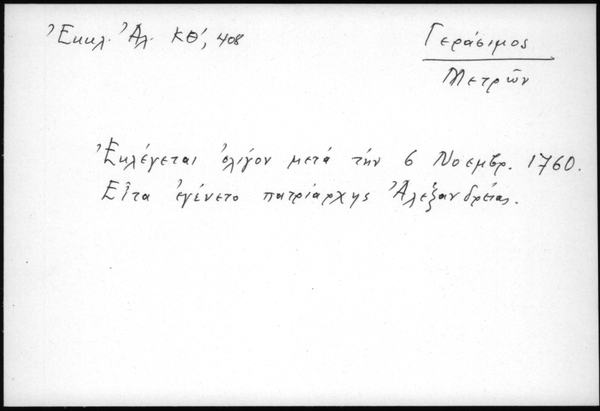 Ἐκκλ. Ἀλ. ΚΘ', 408
Γεράσιμος
Μετρῶν
Ἐκλέγεται ὀλίγον μετά τήν 6 Νοεμβρ. 1760.
Εἶτα ἐγένετο πατριάρχης Ἀλεξανδρείας.